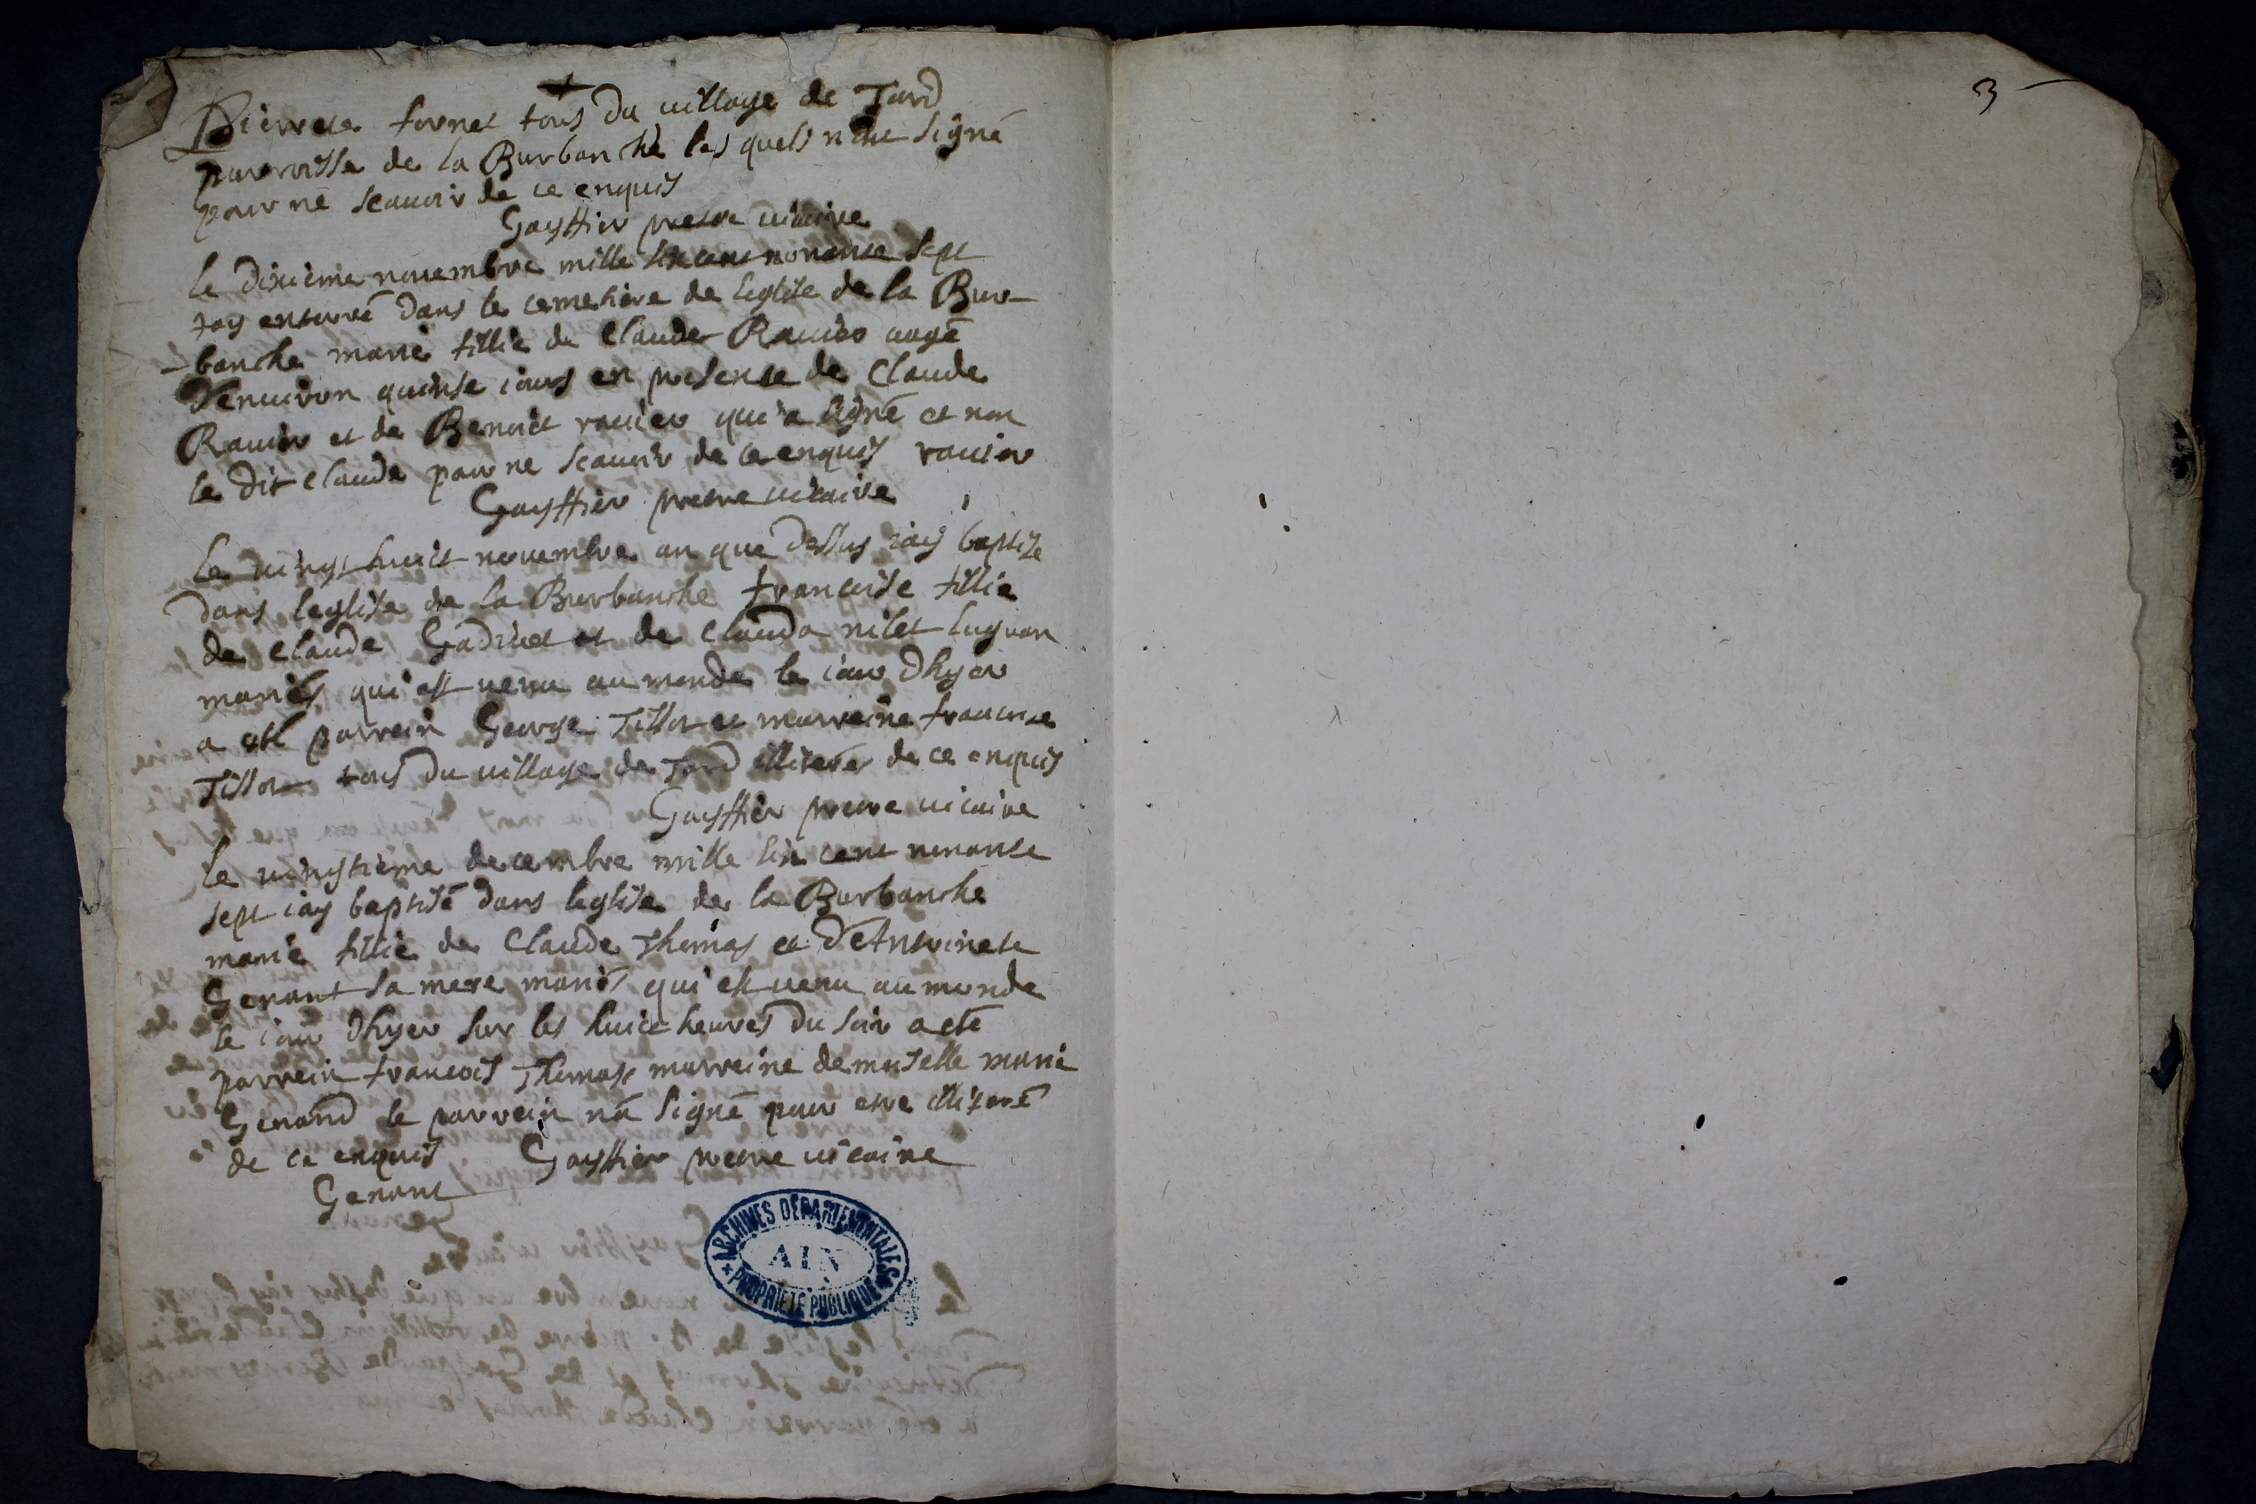 Pierrete fornet tous du village de Tard
parroisse de la Burbanche les quels nont signé
pour ne scauoir de ce enquis
Gayffier prestre uicaire
le dixieme nouembre mille six cent nonante sept
iay enterré dans le cemetiere de leglise de la Bur-
-banche marie fillie de Claude Rauier aagé
denuiron quinse iours en presense de Claude
Rauier et de Benoict rauier qui a signé et non
le dit claude pour ne scauoir de ce enquis rauier
Gayffier prestre uicaire
le uingt huict nouembre an que dessus iay baptise
dans leglise de la Burbanche francoise fillie
de claude Gadiuet et de clauda Luguan
mariés qui est uenu au monde le iour dhyer
a esté parrein George Tissot et marreine francoise
Tissot tous du uillage de Tard illiteres de ce enquis
Gayffier prestre uicaire
le uingtieme decembre mille six cent nonante
sept iay baptisé dans leglise de la Burbanche
marie fillie de Claude Thomas et dAntoinete
Genant sa mere mariés qui est uenu au monde
le iour dhyer sur les huict heures du soir a eté
parrein francois Thomas marreine demoiselle marie
Genand le parrein na signé pour estre illiteré
de ce enquis Gayffier prestre uicaire
Genant
ARCHIVES DÉPARTEMENTALES
AIN
PROPRIÉTÉ PUBLIQUE
3